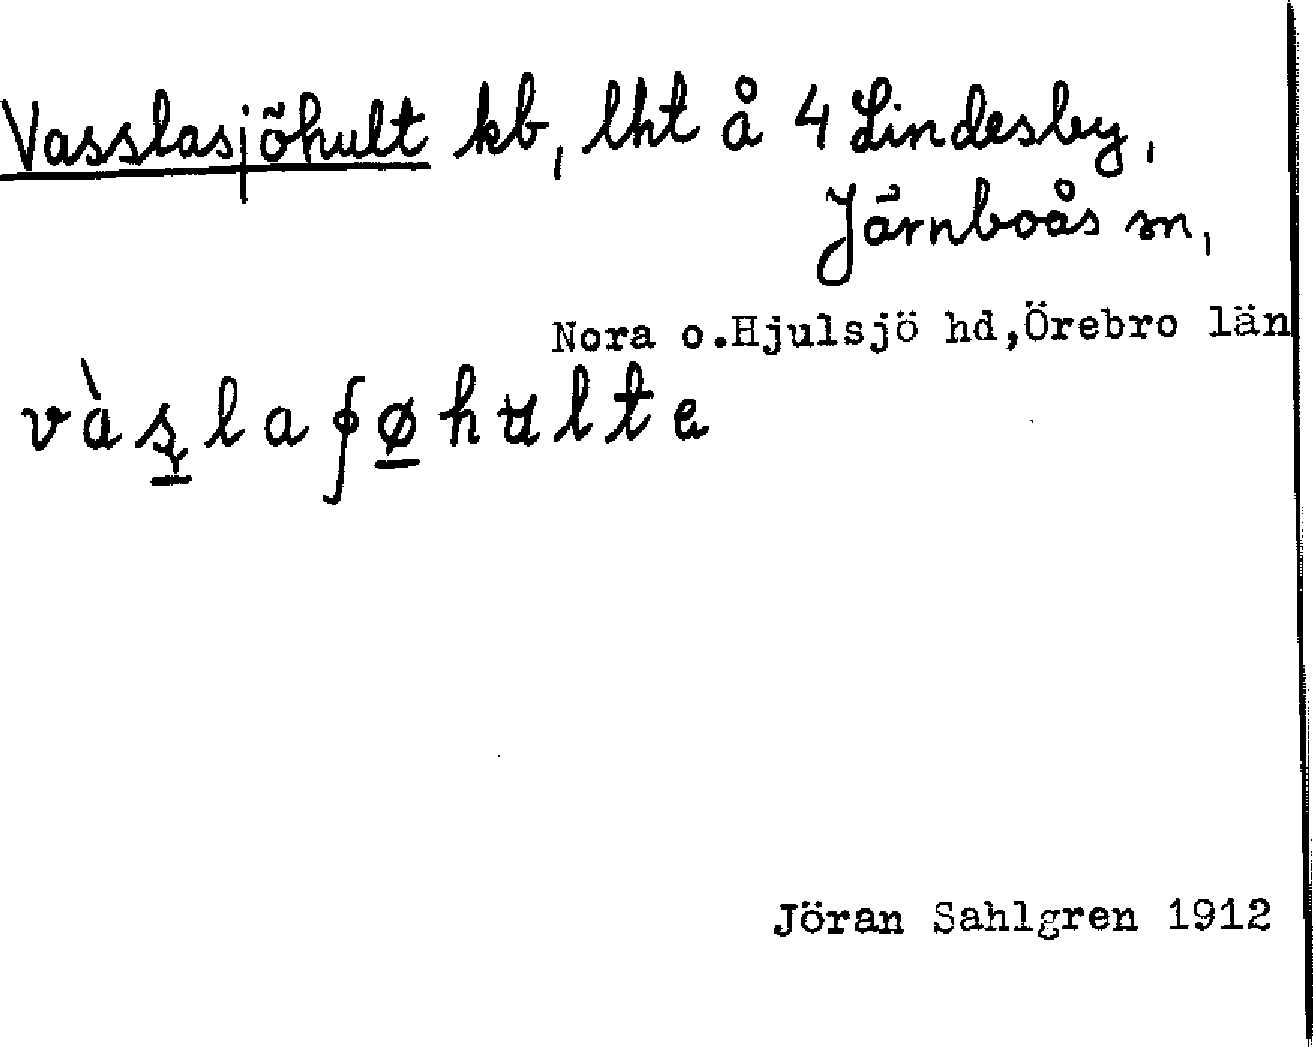 Vasslasjöhult kb, lht å 4 Lindesby,
Järnboås sn,
Nora o.Hjulsjö hd,Örebro län
vàs̱laʃø̱hultе
Jöran Sahlgren 1912